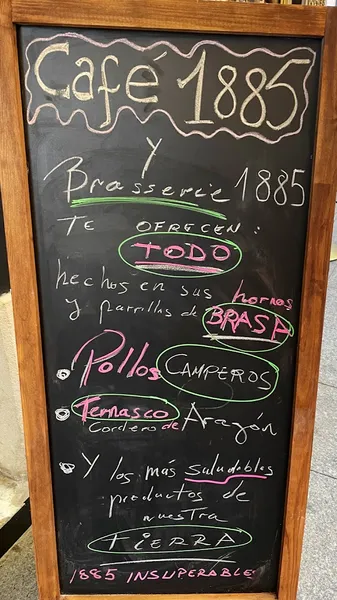 Café 1885
Y
Brasserie 1885
TE OFRECEN:
TODO
hechos en sus hornos
y parrillas de BRASA
Pollos CAMPEROS
Ternasco
Cordero de Aragón
Y los más saludables
productos de
nuestra
TiERRA
1885 INSUPERABLE